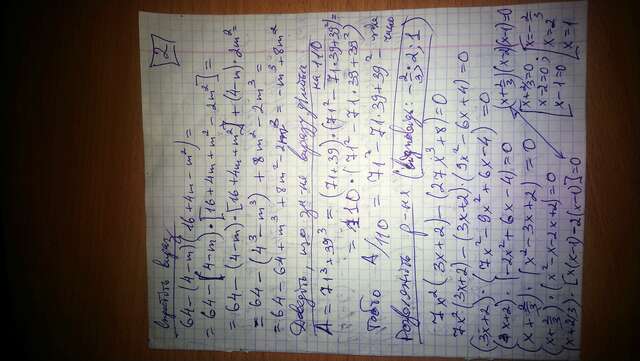 2
Спростіть вираз
64 - (4-m)(16+4m-m²) =
= 64 - (4-m)·[16+4m+m²-2m²] =
= 64 - (4-m)·[16+4m+m²] + (4-m)·2m²
= 64 - (4³-m³) + 8m² - 2m³ =
= 64 - 64 + m³ + 8m² - 2m³ = -m³ + 8m²
Доведіть, що зн-ня виразу ділиться
на 110
A = 71³ + 39³ = (71+39)·(71² - 71·39 + 39²) =
= 110·(71² - 71·39 + 39²)
Тобто A/110 = 71² - 71·39 + 39² - ціле
число
Розв'яжіть р-ня (Відповідь: -2/3; 2; 1)
7x²(3x+2) - (27x³+8) = 0
7x²(3x+2) - (3x+2)·(9x²-6x+4) = 0
(3x+2)·(7x²-9x²+6x-4) = 0
(3x+2)·(-2x²+6x-4) = 0
(x+2/3)·(x²-3x+2) = 0
(x+2/3)·(x²-x-2x+2) = 0
(x+2/3)·[x(x-1)-2(x-1)] = 0
(x+2/3)(x-2)(x-1) = 0
x+2/3=0 x=-2/3
x-2=0; x=2
x-1=0 x=1